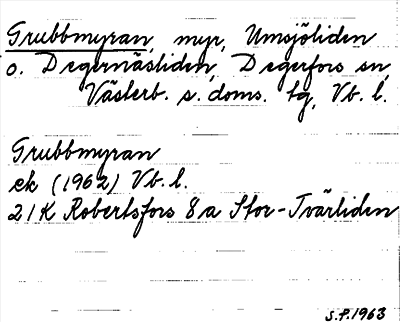 Grubbmyran, myr, Umsjöliden
o. Degernäsliden, Degerfors sn,
Västerb. s. doms. tg, Vb. l.
Grubbmyran
ek (1962) Vb. l.
21K Robertsfors 8a Stor-Tvärliden
S.P. 1963